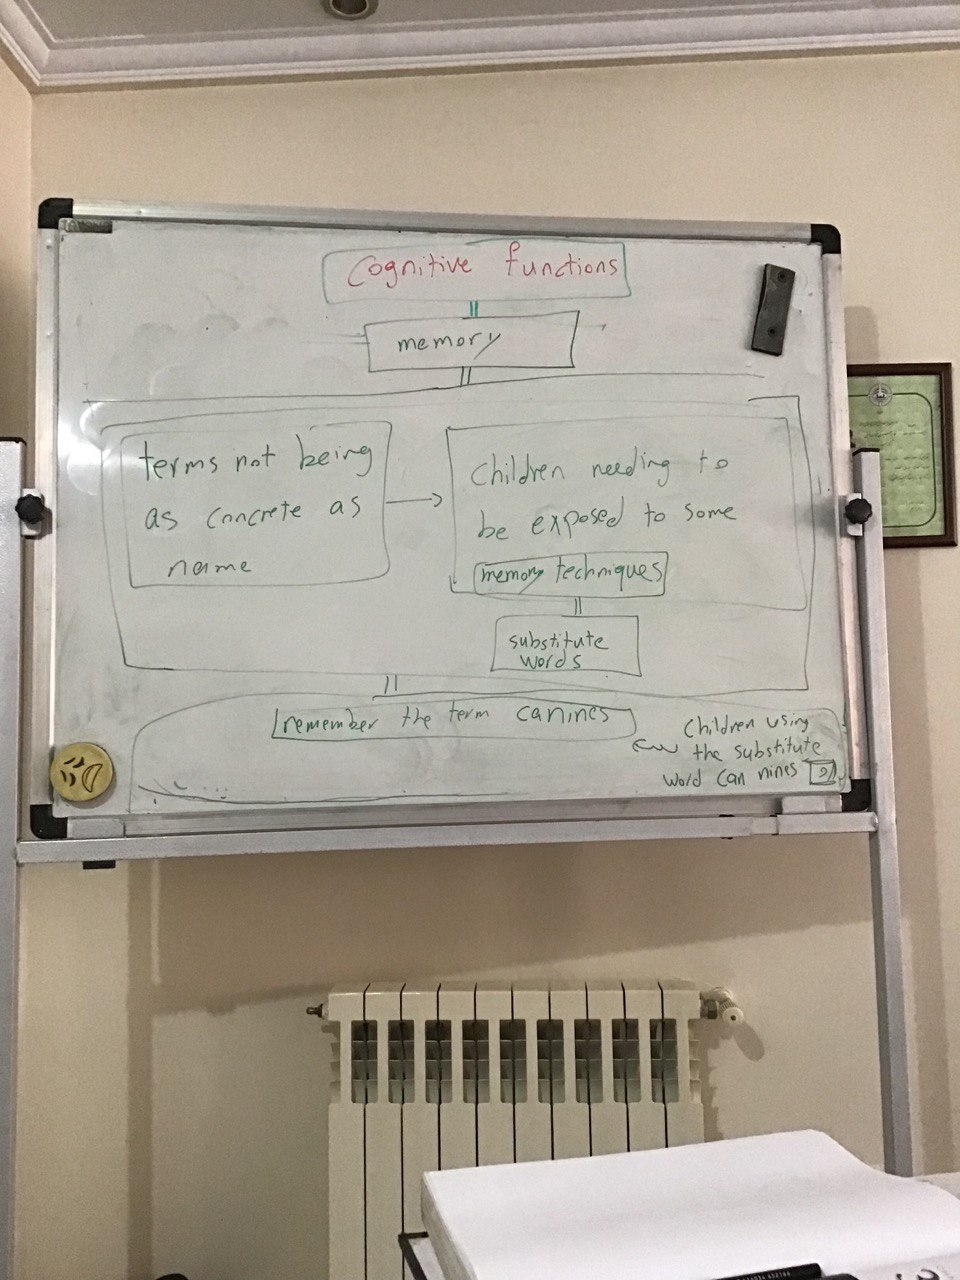 Cognitive functions
memory
terms not being
as concrete as
name
children needing to
be exposed to some
memory techniques
substitute
words
remember the term canines
children using
the substitute
word can nines